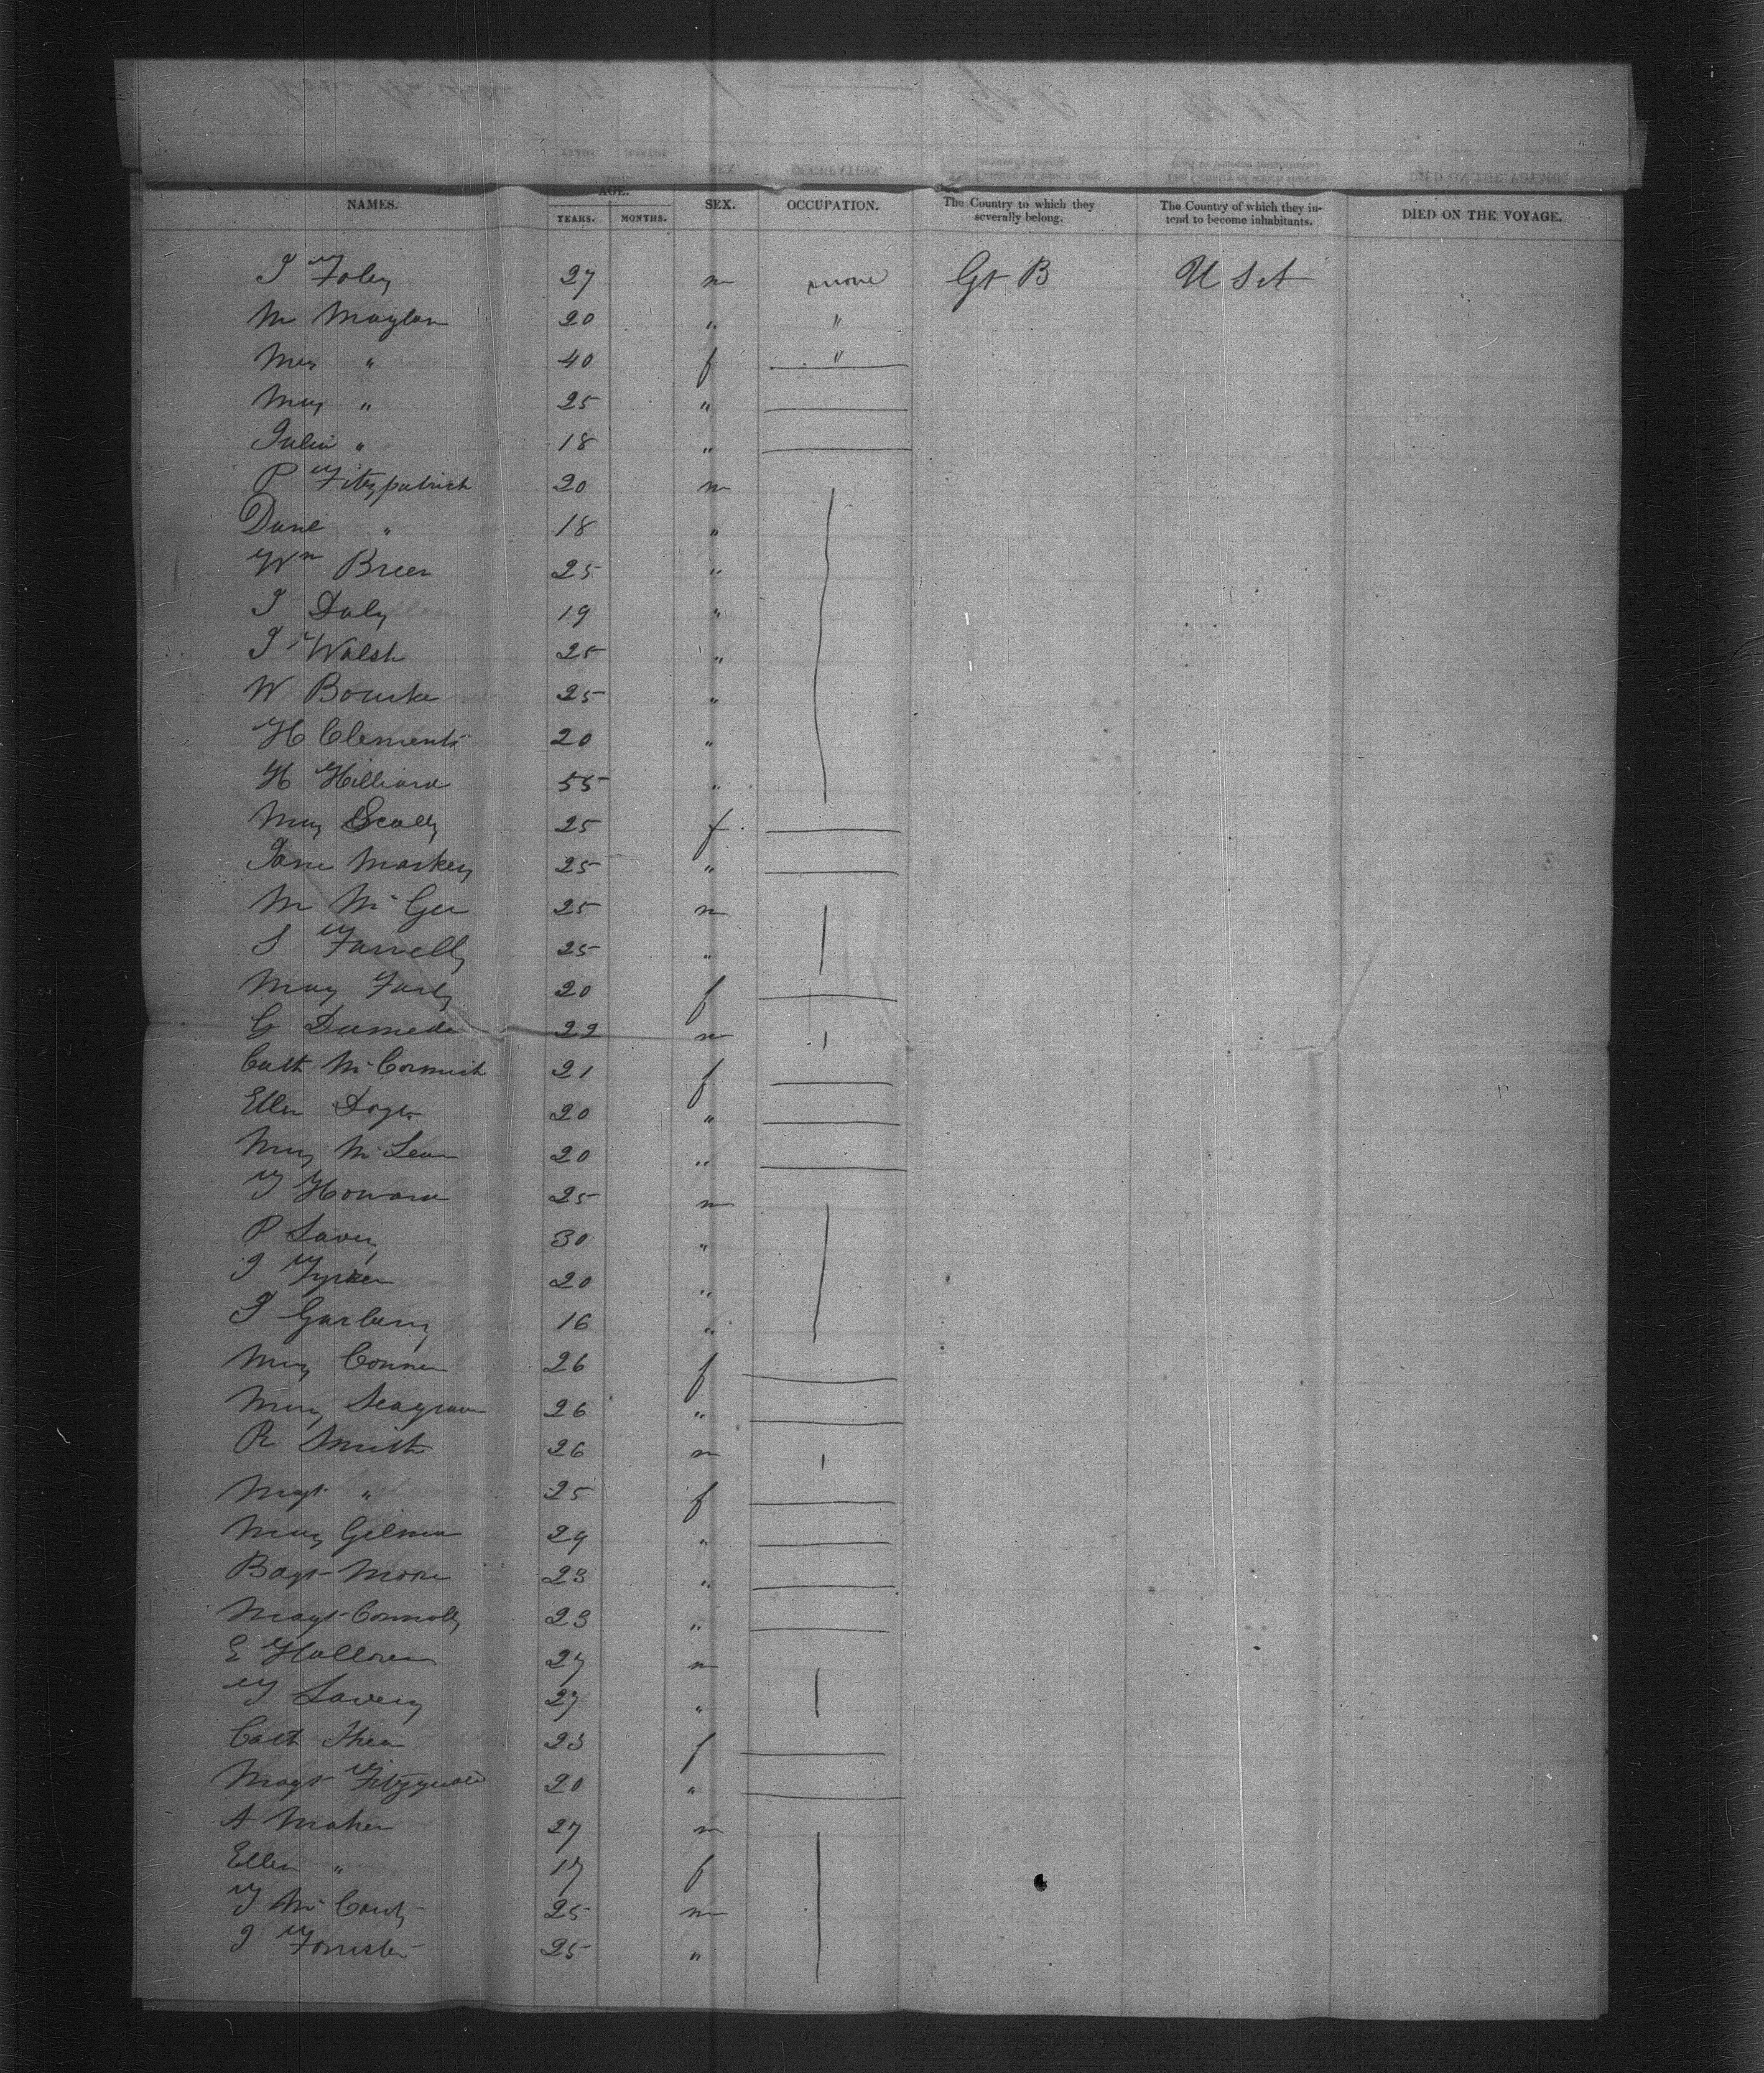 NAMES. AGE. YEARS. MONTHS. SEX. OCCUPATION. The Country to which they severally belong. The Country of which they intend to become inhabitants. DIED ON THE VOYAGE.
J Foley 27 m none Gt B U S A
M Moylan 20 " "
Mrs " 40 f "
Mary " 25 "
Julia " 18 "
P Fitzpatrick 20 m
Danl " 18 "
Wm Breen 25 "
J Daly 19 "
J Walsh 25 "
W Bourke 25 "
H Clements 20 "
H Hilliard 55 "
Mary Scally 25 f
Jane Markey 25 "
M McGee 25 m
S Farrelly 25 "
Mary Farly 20 f
G 22 m
Cath McCormick 21 f
Ellen 20 "
Mary McLean 20 "
T Howard 25 m
P Lavery 30 "
J 20 "
J 16 "
Mary Connor 26 f
Mary Seagrave 26 "
R Smith 26 m
Magt " 25 f
Mary 24 "
Bagt Moore 23 "
Magt Connolly 23 "
E Halloren 27 m
T Lavery 27 "
Cath Shea 23 f
Magt Fitzgerald 20 "
A Maher 27 m
Ellen " 17 f
T McCarty 25 m
J Forrester 25 "